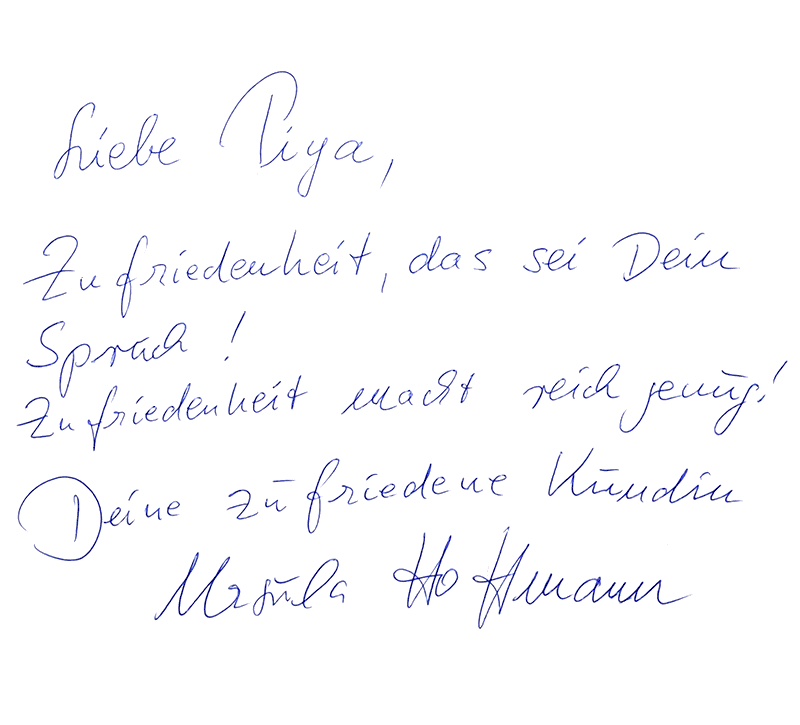 Liebe Piya,
Zufriedenheit, das sei Dein
Spruch!
Zufriedenheit macht reich genug!
Deine zufriedene Kundin
Ursula Hoffmann